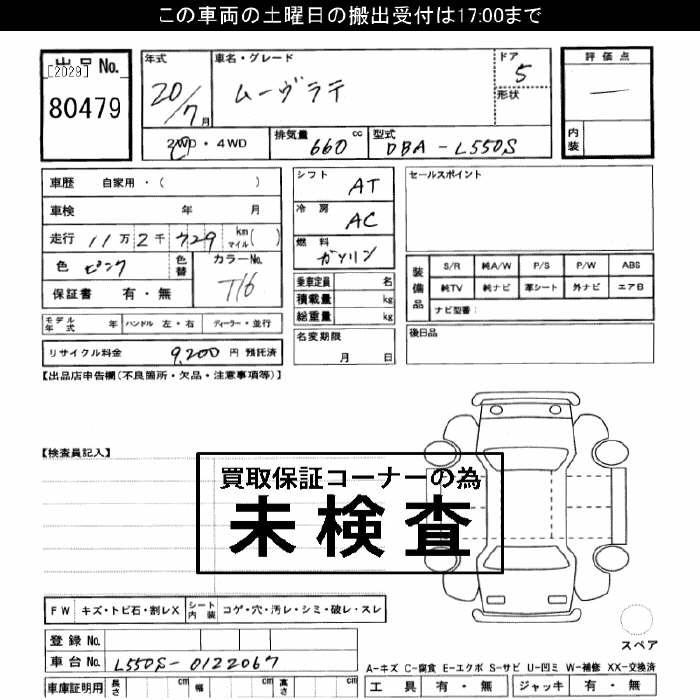 この車両の土曜日の搬出受付は17:00まで
出品No.
[2029]
80479
年式
20/7月
車名・グレード
ムーヴラテ
ドア
5
形状
評価点
内装
2WD・4WD
排気量 660 cc
型式 DBA-L550S
車歴 自家用・( )
車検 年 月
走行 11万2千729 km マイル( )
色 ピンク
色替
カラーNo.
T16
保証書 有・無
モデル年式 年 ハンドル 左・右 ディーラー・並行
リサイクル料金 9,200 円 預託済
シフト AT
冷房 AC
燃料 ガソリン
乗車定員 名
積載量 kg
総重量 kg
名変期限
月 日
セールスポイント
装備品
S/R 純A/W P/S P/W ABS
純TV 純ナビ 革シート 外ナビ エアB
ナビ型番:
後日品
【出品店申告欄(不良箇所・欠品・注意事項等)】
【検査員記入】
買取保証コーナーの為
未検査
FW キズ・トビ石・割レX シート内装 コゲ・穴・汚レ・シミ・破レ・スレ
登録No.
車台No. L550S-0122067
車庫証明用 長さ cm 幅 cm 高さ cm
スペア
A-キズ C-腐食 E-エクボ S-サビ U-凹ミ W-補修 XX-交換済
工具 有・無 ジャッキ 有・無